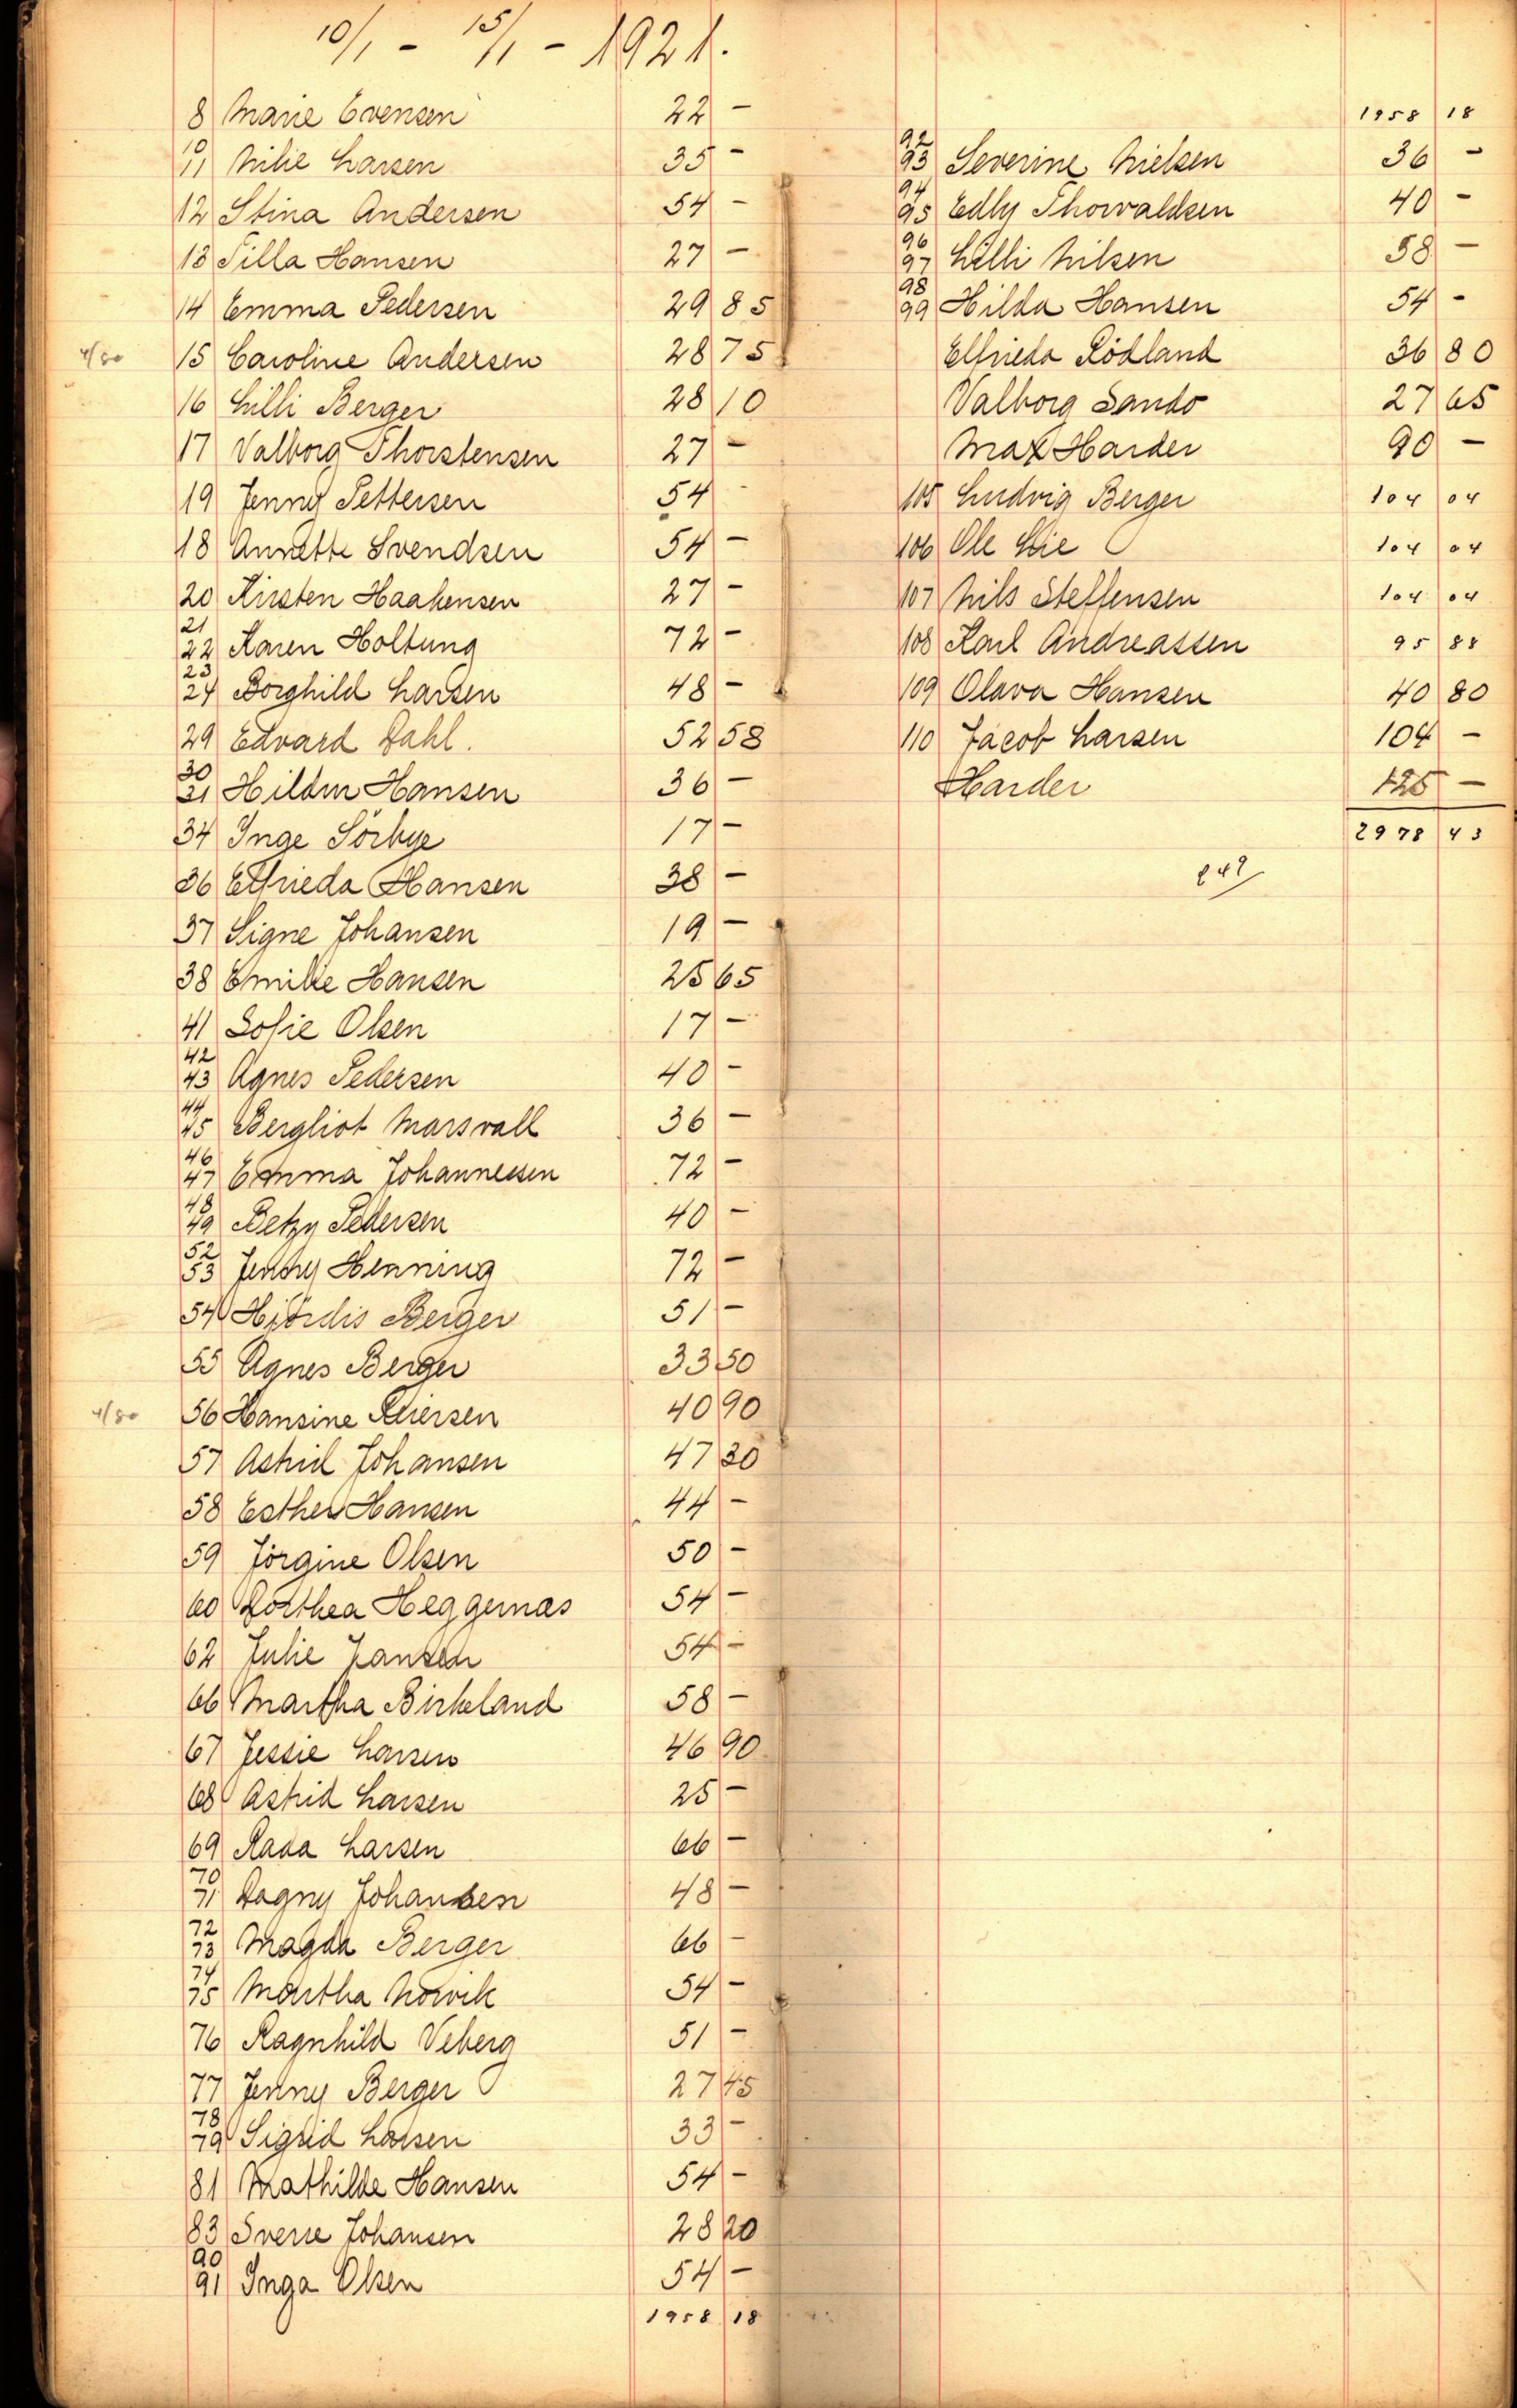 10/1 - 15/1 - 1921.
8 Marie Evensen 22 -
10
11 Milie Larsen 35 -
12 Stina Andersen 54 -
13 Tilla Hansen 27 -
14 Emma Pedersen 29 85
4/80 15 Caroline Andersen 28 75
16 Lilli Berger 28 10
17 Valborg Thorstensen 27 -
19 Jenny Pettersen 54 -
18 Annette Svendsen 54 -
20 Kirsten Haakensen 27 -
21
22 Karen Holtung 72 -
23
24 Borghild Larsen 48 -
29 Edvard Dahl. 52 58
30
31 Hildur Hansen 36 -
34 Inge Sörbye 17 -
36 Elfrieda Hansen 38 -
37 Signe Johansen 19 -
38 Emilie Hansen 25 65
41 Sofie Olsen 17 -
42
43 Agnes Pedersen 40 -
44
45 Bergliot Marsvall 36 -
46
47 Emma Johannessen 72 -
48
49 Betzy Pedersen 40 -
52
53 Jenny Henning 72 -
54 Hjördis Berger 51 -
55 Agnes Berger 33 50
4/80 56 Hansine Iversen 40 90
57 Astrid Johansen 47 30
58 Esther Hansen 44 -
59 Jörgine Olsen 50 -
60 Dorthea Heggernæs 54 -
62 Julie Jansen 54 -
66 Martha Birkeland 58 -
67 Jessie Larsen 46 90
68 Astrid Larsen 25 -
69 Raga Larsen 66 -
70
71 Dagny Johansen 48 -
72
73 Magda Berger 66 -
74
75 Martha Norvik 54 -
76 Ragnhild Veberg 51 -
77 Jenny Berger 27 45
78
79 Sigrid Larsen 33 -
81 Mathilde Hansen 54 -
83 Sverre Johansen 28 20
90
91 Inga Olsen 54 -
1958 18
1958 18
92
93 Severine Nielsen 36 -
94
95 Edly Thorvaldsen 40 -
96
97 Lilli Nilsen 58 -
98
99 Hilda Hansen 54 -
Elfrieda Rödland 36 80
Valborg Sando 27 65
Max Harder 90 -
105 Ludvig Berger 104 04
106 Ole Lie 104 04
107 Nils Steffensen 104 04
108 Karl Andreassen 95 88
109 Olava Hansen 40 80
110 Jacob Larsen 104 -
Harder 125 -
2978 43